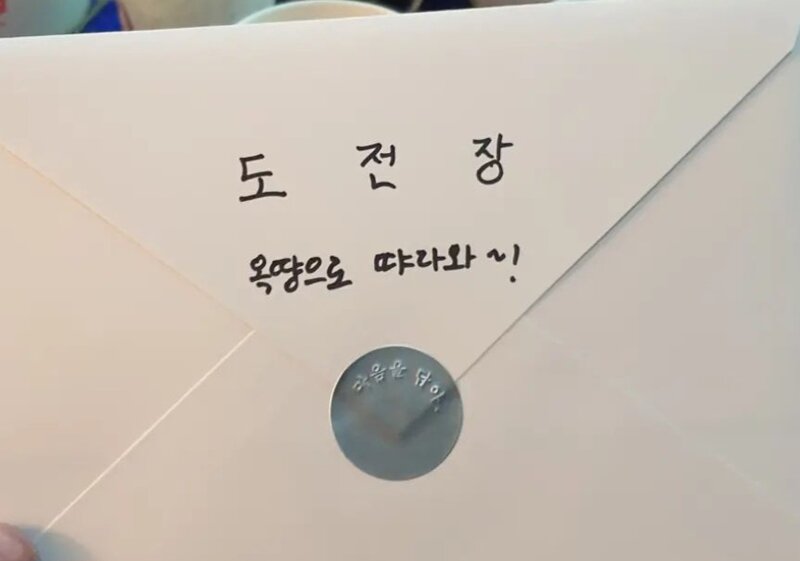 도 전 장
옥땅으로 땨라와~!
마음을 담아.